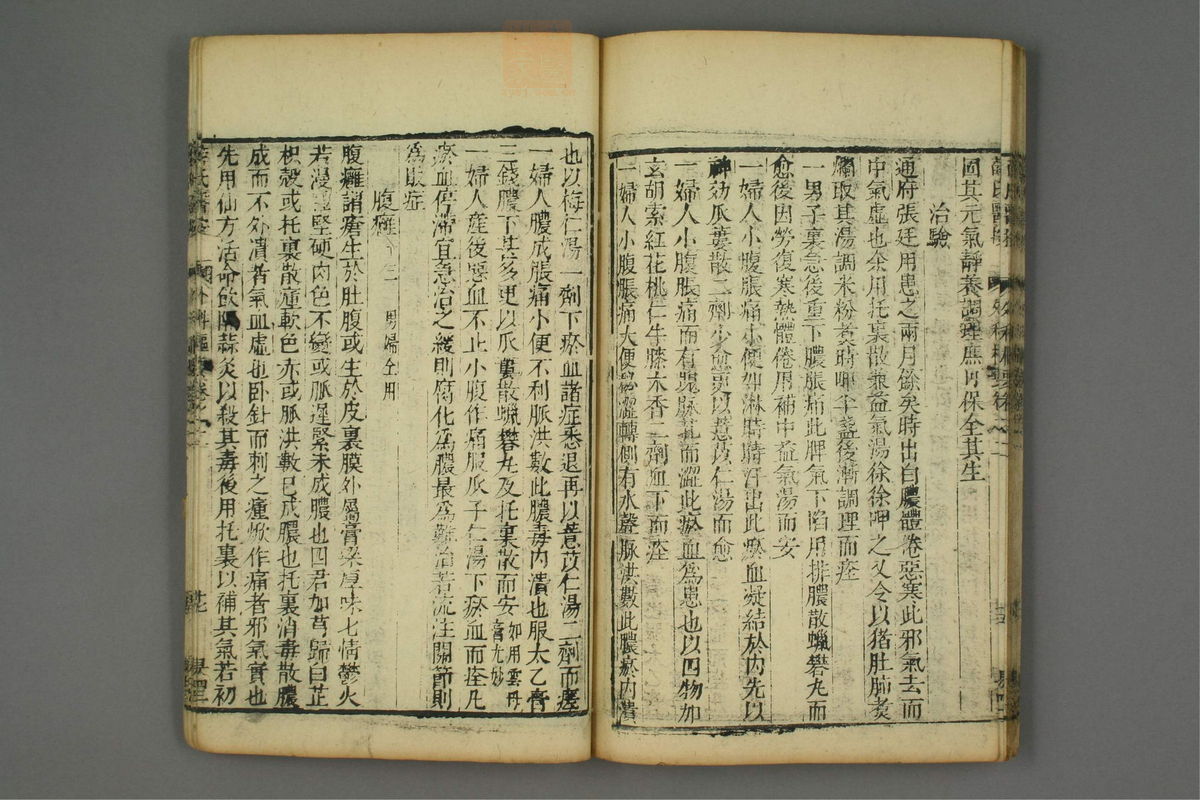 固其元氣靜養調理庶可保全其生
治驗
通府張廷用患之兩月餘矣時出白膿體倦惡寒此邪氣去而
中氣虛也余用托裏散兼益氣湯徐徐呷之又令以猪肚肺煑
爛取其湯調米粉煑時呷半盞後漸調理而痊
一男子裏急後重下膿脹痛此脾氣下陷用排膿散蠟礬丸而
愈後因勞復寒熱體倦用補中益氣湯而安
一婦人小腹脹痛小便如淋時時汗出此瘀血凝結於内先以
神効瓜蔞散二劑少愈更以薏苡仁湯而愈
一婦人小腹脹痛而有塊脉芤而澀此瘀血爲患也以四物加
玄胡索紅花桃仁牛膝木香二劑血下而痊
一婦人小腹脹痛大便秘澀轉側有水聲脉洪數此膿瘀内潰
也以梅仁湯一劑下瘀血諸症悉退再以薏苡仁湯二劑而痊
一婦人膿成脹痛小便不利脈洪數此膿毒内潰也服太乙膏
三錢膿下甚多更以瓜蔞散蠟礬丸及托裏散而安如用雲母膏尤妙
一婦人産後惡血不止小腹作痛服瓜子仁湯下瘀血而痊凡
瘀血停滯宜急治之緩則腐化爲膿最爲難治若流注關節則
爲敗症
腹癰 十三 男婦仝用
腹癰謂瘡生於肚腹或生於皮裏膜外屬膏粱厚味七情鬱火
若漫腫堅硬肉色不變或脈遲緊未成膿也四君加芎歸白芷
枳殼或托裏散瘇軟色赤或脈洪數已成膿也托裏消毒散膿
成而不外潰者氣血虛也卧針而刺之瘇焮作痛者邪氣實也
先用仙方活命飲隔蒜灸以殺其毒後用托裏以補其氣若初